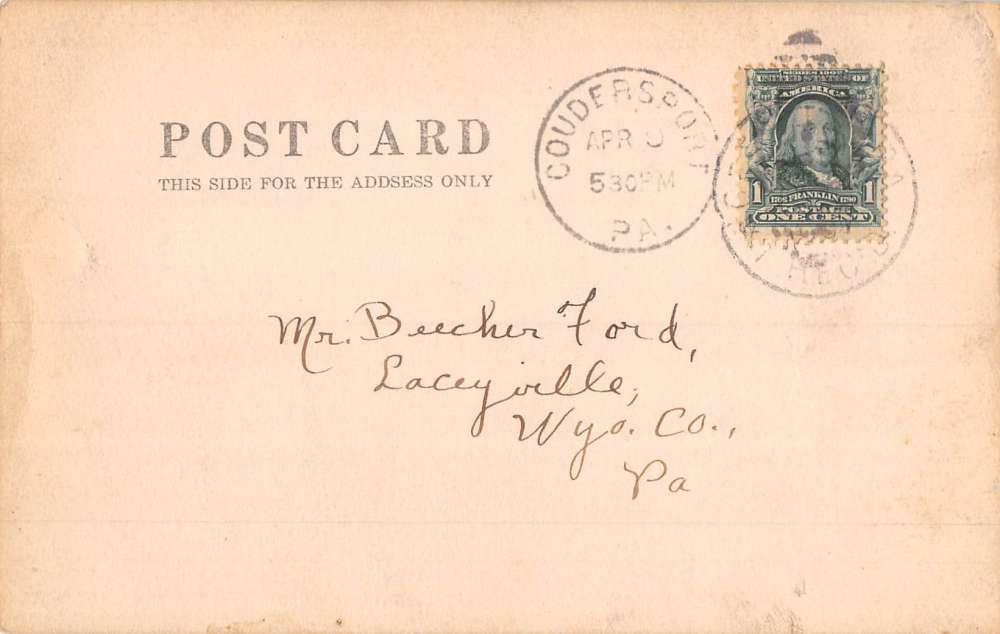 POST CARD
THIS SIDE FOR THE ADDSESS ONLY
COUDERSPORT
APR
530PM
PA.
SERIES 1902
UNITED STATES OF
AMERICA
1 1
1706 FRANKLIN 1790
POSTAGE
ONE CENT
REC'D
Mr. Beecher Ford,
Laceyville,
Wyo. Co.,
Pa